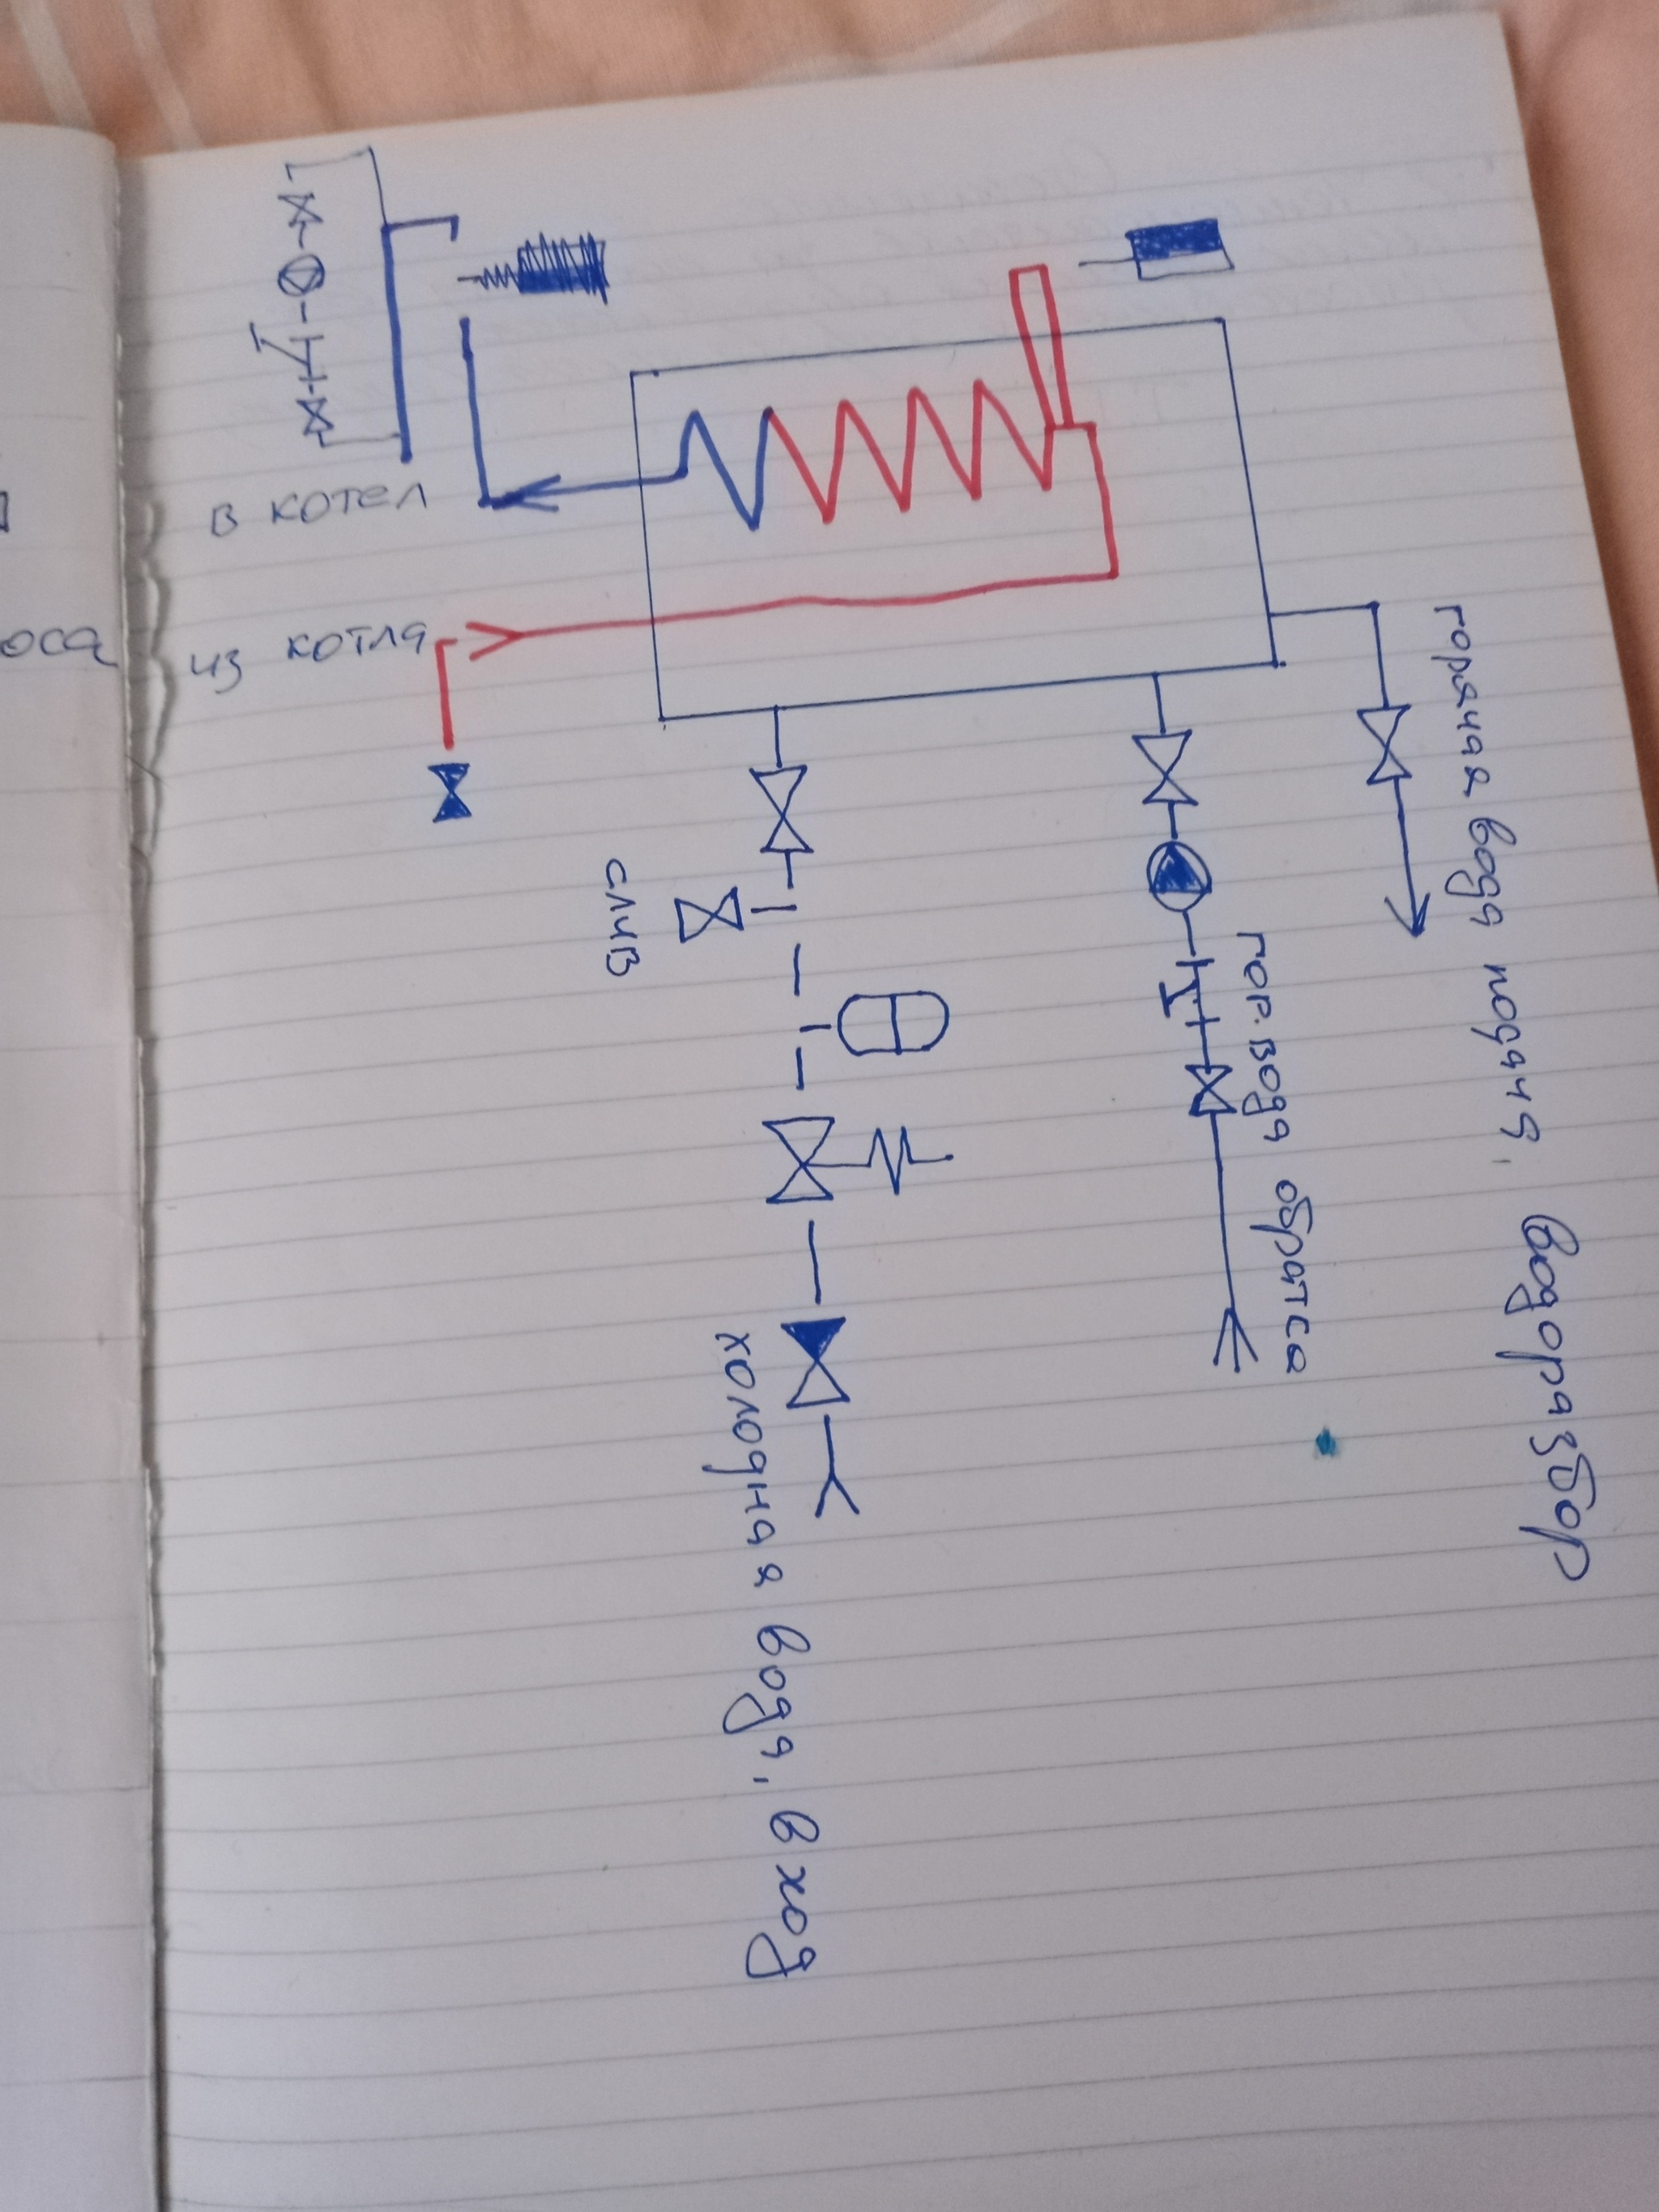 в котел
из котла
горячая вода подача, водоразбор
гор. вода обратка
слив
холодная вода, вход
оса